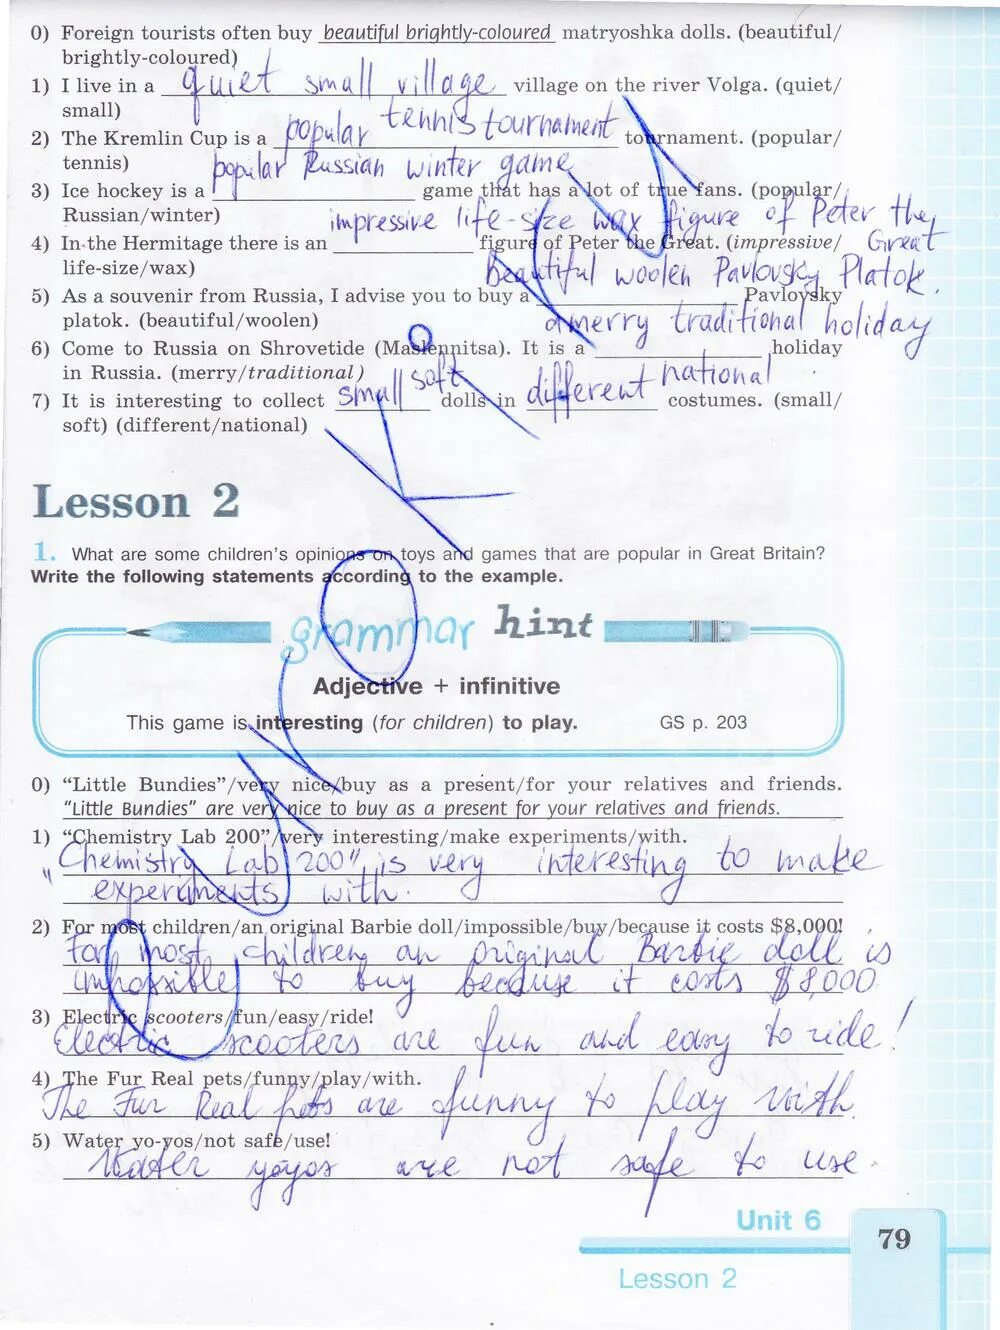 0) Foreign tourists often buy beautiful brightly-coloured matryoshka dolls. (beautiful/
brightly-coloured)
1) I live in a quiet small village village on the river Volga. (quiet/
small)
2) The Kremlin Cup is a popular tennis tournament tournament. (popular/
tennis)
popular Russian winter game
3) Ice hockey is a game that has a lot of true fans. (popular/
Russian/winter)
impressive life-size wax figure of Peter the
4) In the Hermitage there is an figure of Peter the Great. (impressive/ Great
life-size/wax)
beautiful woolen Pavlovsky Platok.
5) As a souvenir from Russia, I advise you to buy a Pavlovsky
platok. (beautiful/woolen)
a merry traditional holiday
6) Come to Russia on Shrovetide (Maslennitsa). It is a holiday
in Russia. (merry/traditional)
7) It is interesting to collect small soft dolls in different national costumes. (small/
soft) (different/national)
Lesson 2
1. What are some children's opinions on toys and games that are popular in Great Britain?
Write the following statements according to the example.
grammar hint
Adjective + infinitive
This game is interesting (for children) to play. GS p. 203
0) "Little Bundies"/very nice/buy as a present/for your relatives and friends.
"Little Bundies" are very nice to buy as a present for your relatives and friends.
1) "Chemistry Lab 200"/very interesting/make experiments/with.
"Chemistry Lab 200" is very interesting to make
experiments with.
2) For most children/an original Barbie doll/impossible/buy/because it costs $8,000!
For most children an original Barbie doll is
impossible to buy because it costs $8,000
3) Electric scooters/fun/easy/ride!
Electric scooters are fun and easy to ride!
4) The Fur Real pets/funny/play/with.
The Fur Real pets are funny to play with.
5) Water yo-yos/not safe/use!
Water yoyos are not safe to use.
Unit 6
79
Lesson 2